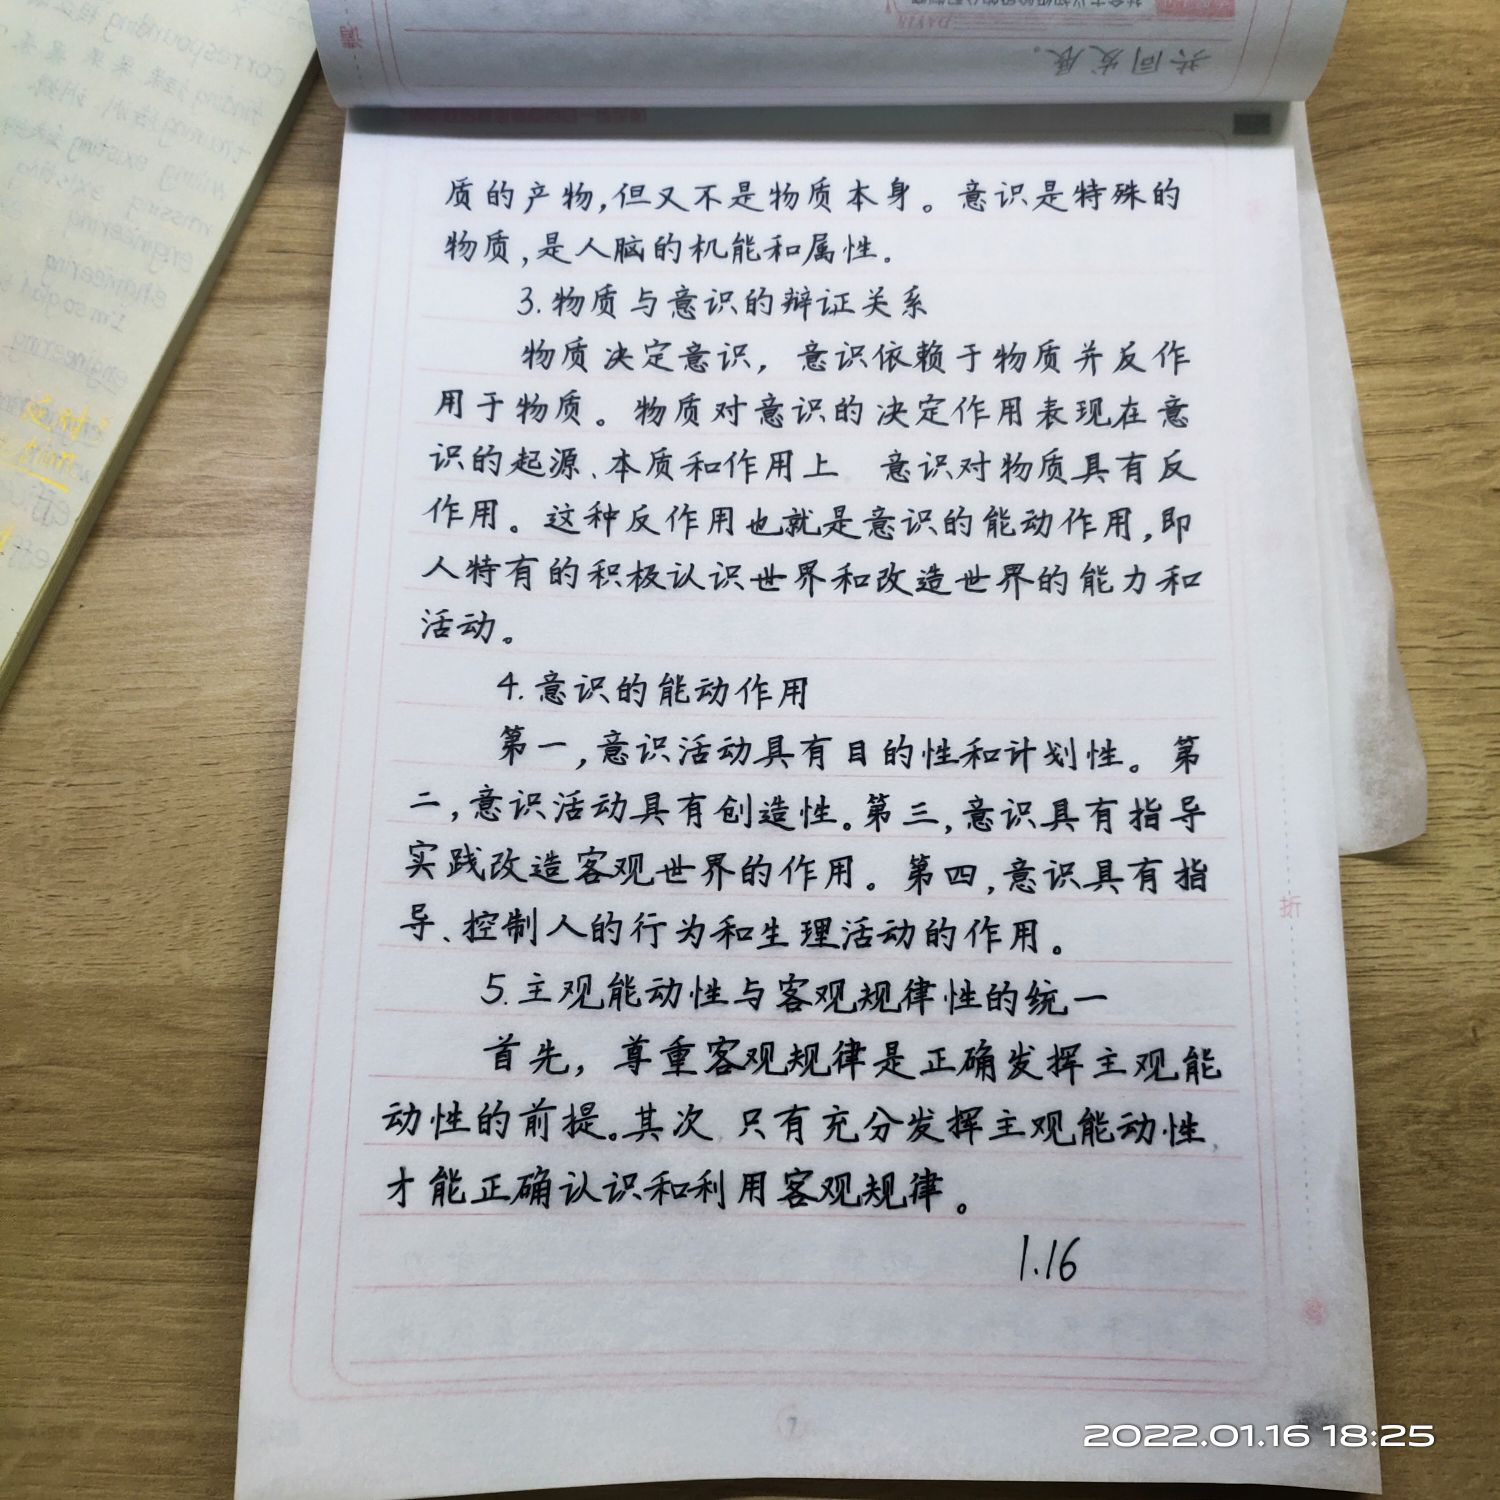 共同发展。
质的产物,但又不是物质本身。意识是特殊的
物质,是人脑的机能和属性.
3.物质与意识的辩证关系
物质决定意识,意识依赖于物质并反作
用于物质。物质对意识的决定作用表现在意
识的起源、本质和作用上 意识对物质具有反
作用。这种反作用也就是意识的能动作用,即
人特有的积极认识世界和改造世界的能力和
活动。
4.意识的能动作用
第一,意识活动具有目的性和计划性。第
二,意识活动具有创造性。第三,意识具有指导
实践改造客观世界的作用。第四,意识具有指
导、控制人的行为和生理活动的作用。
5.主观能动性与客观规律性的统一
首先,尊重客观规律是正确发挥主观能
动性的前提。其次,只有充分发挥主观能动性,
才能正确认识和利用客观规律。
1.16
折
7
2022.01.16 18:25